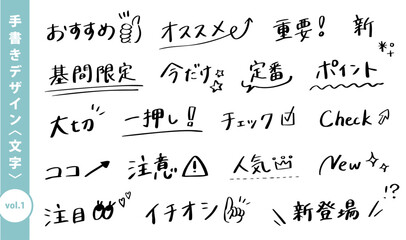 手書きデザイン〈文字〉
vol.1
おすすめ オススメ 重要! 新
基間限定 今だけ 定番 ポイント
大切 一押し! チェック Check
ココ 注意 人気 New
注目 イチオシ 新登場 !?